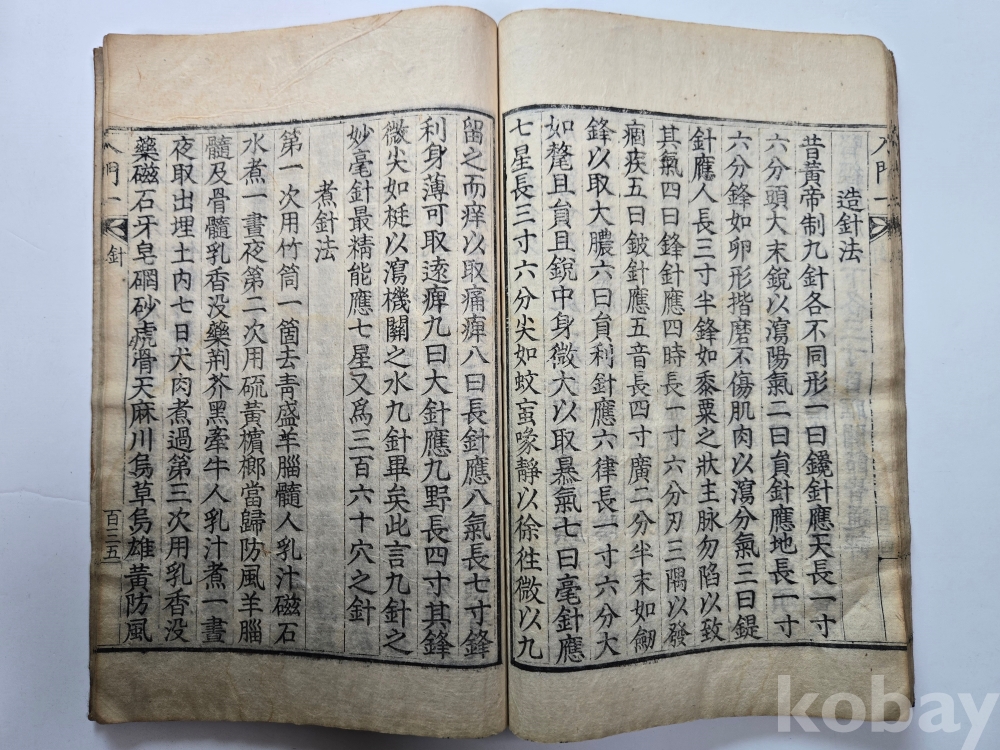 造針法
昔黃帝制九針各不同形一曰鑱針應天長一寸
六分頭大末銳以瀉陽氣二曰員針應地長一寸
六分鋒如卵形揩磨不傷肌肉以瀉分氣三曰鍉
針應人長三寸半鋒如黍粟之狀主脉勿陷以致
其氣四曰鋒針應四時長一寸六分刃三隅以發
痼疾五曰鈹針應五音長四寸廣二分半末如劒
鋒以取大膿六曰員利針應六律長一寸六分大
如氂且員且銳中身微大以取暴氣七曰毫針應
七星長三寸六分尖如蚊䖟喙靜以徐徃微以九
留之而痒以取痛痺八曰長針應八氣長七寸鋒
利身薄可取遠痺九曰大針應九野長四寸其鋒
微尖如梃以瀉機關之水九針畢矣此言九針之
妙毫針最精能應七星又爲三百六十穴之針
煮針法
第一次用竹筒一箇去靑盛羊腦髓人乳汁磁石
水煮一晝夜第二次用硫黃檳榔當歸防風羊腦
髓及骨髓乳香没藥荆芥黑牽牛人乳汁煮一晝
夜取出埋土内七日犬肉煮過第三次用乳香没
藥磁石牙皂硇砂虎滑天麻川烏草烏雄黃防風
入門一
針
百二五
入門一
kobay